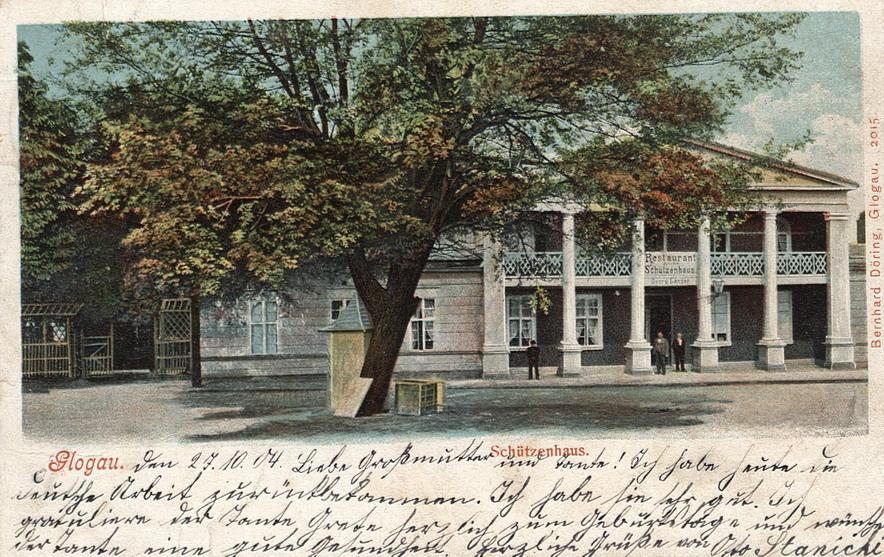 Restaurant
Schützenhaus
Bernhard Döring, Glogau. 2015.
Glogau. Schützenhaus.
den 27.10.04. Liebe Großmutter und Tante! Ich habe heute die
deutsche Arbeit zurückbekammen. Ich habe sie sehr gut. Ich
gratuliere der Tante Grete herzlich zum Geburtstage und wünsche
der Tante eine gute Gesundheit. Herzliche Grüße von Otto Stanicki